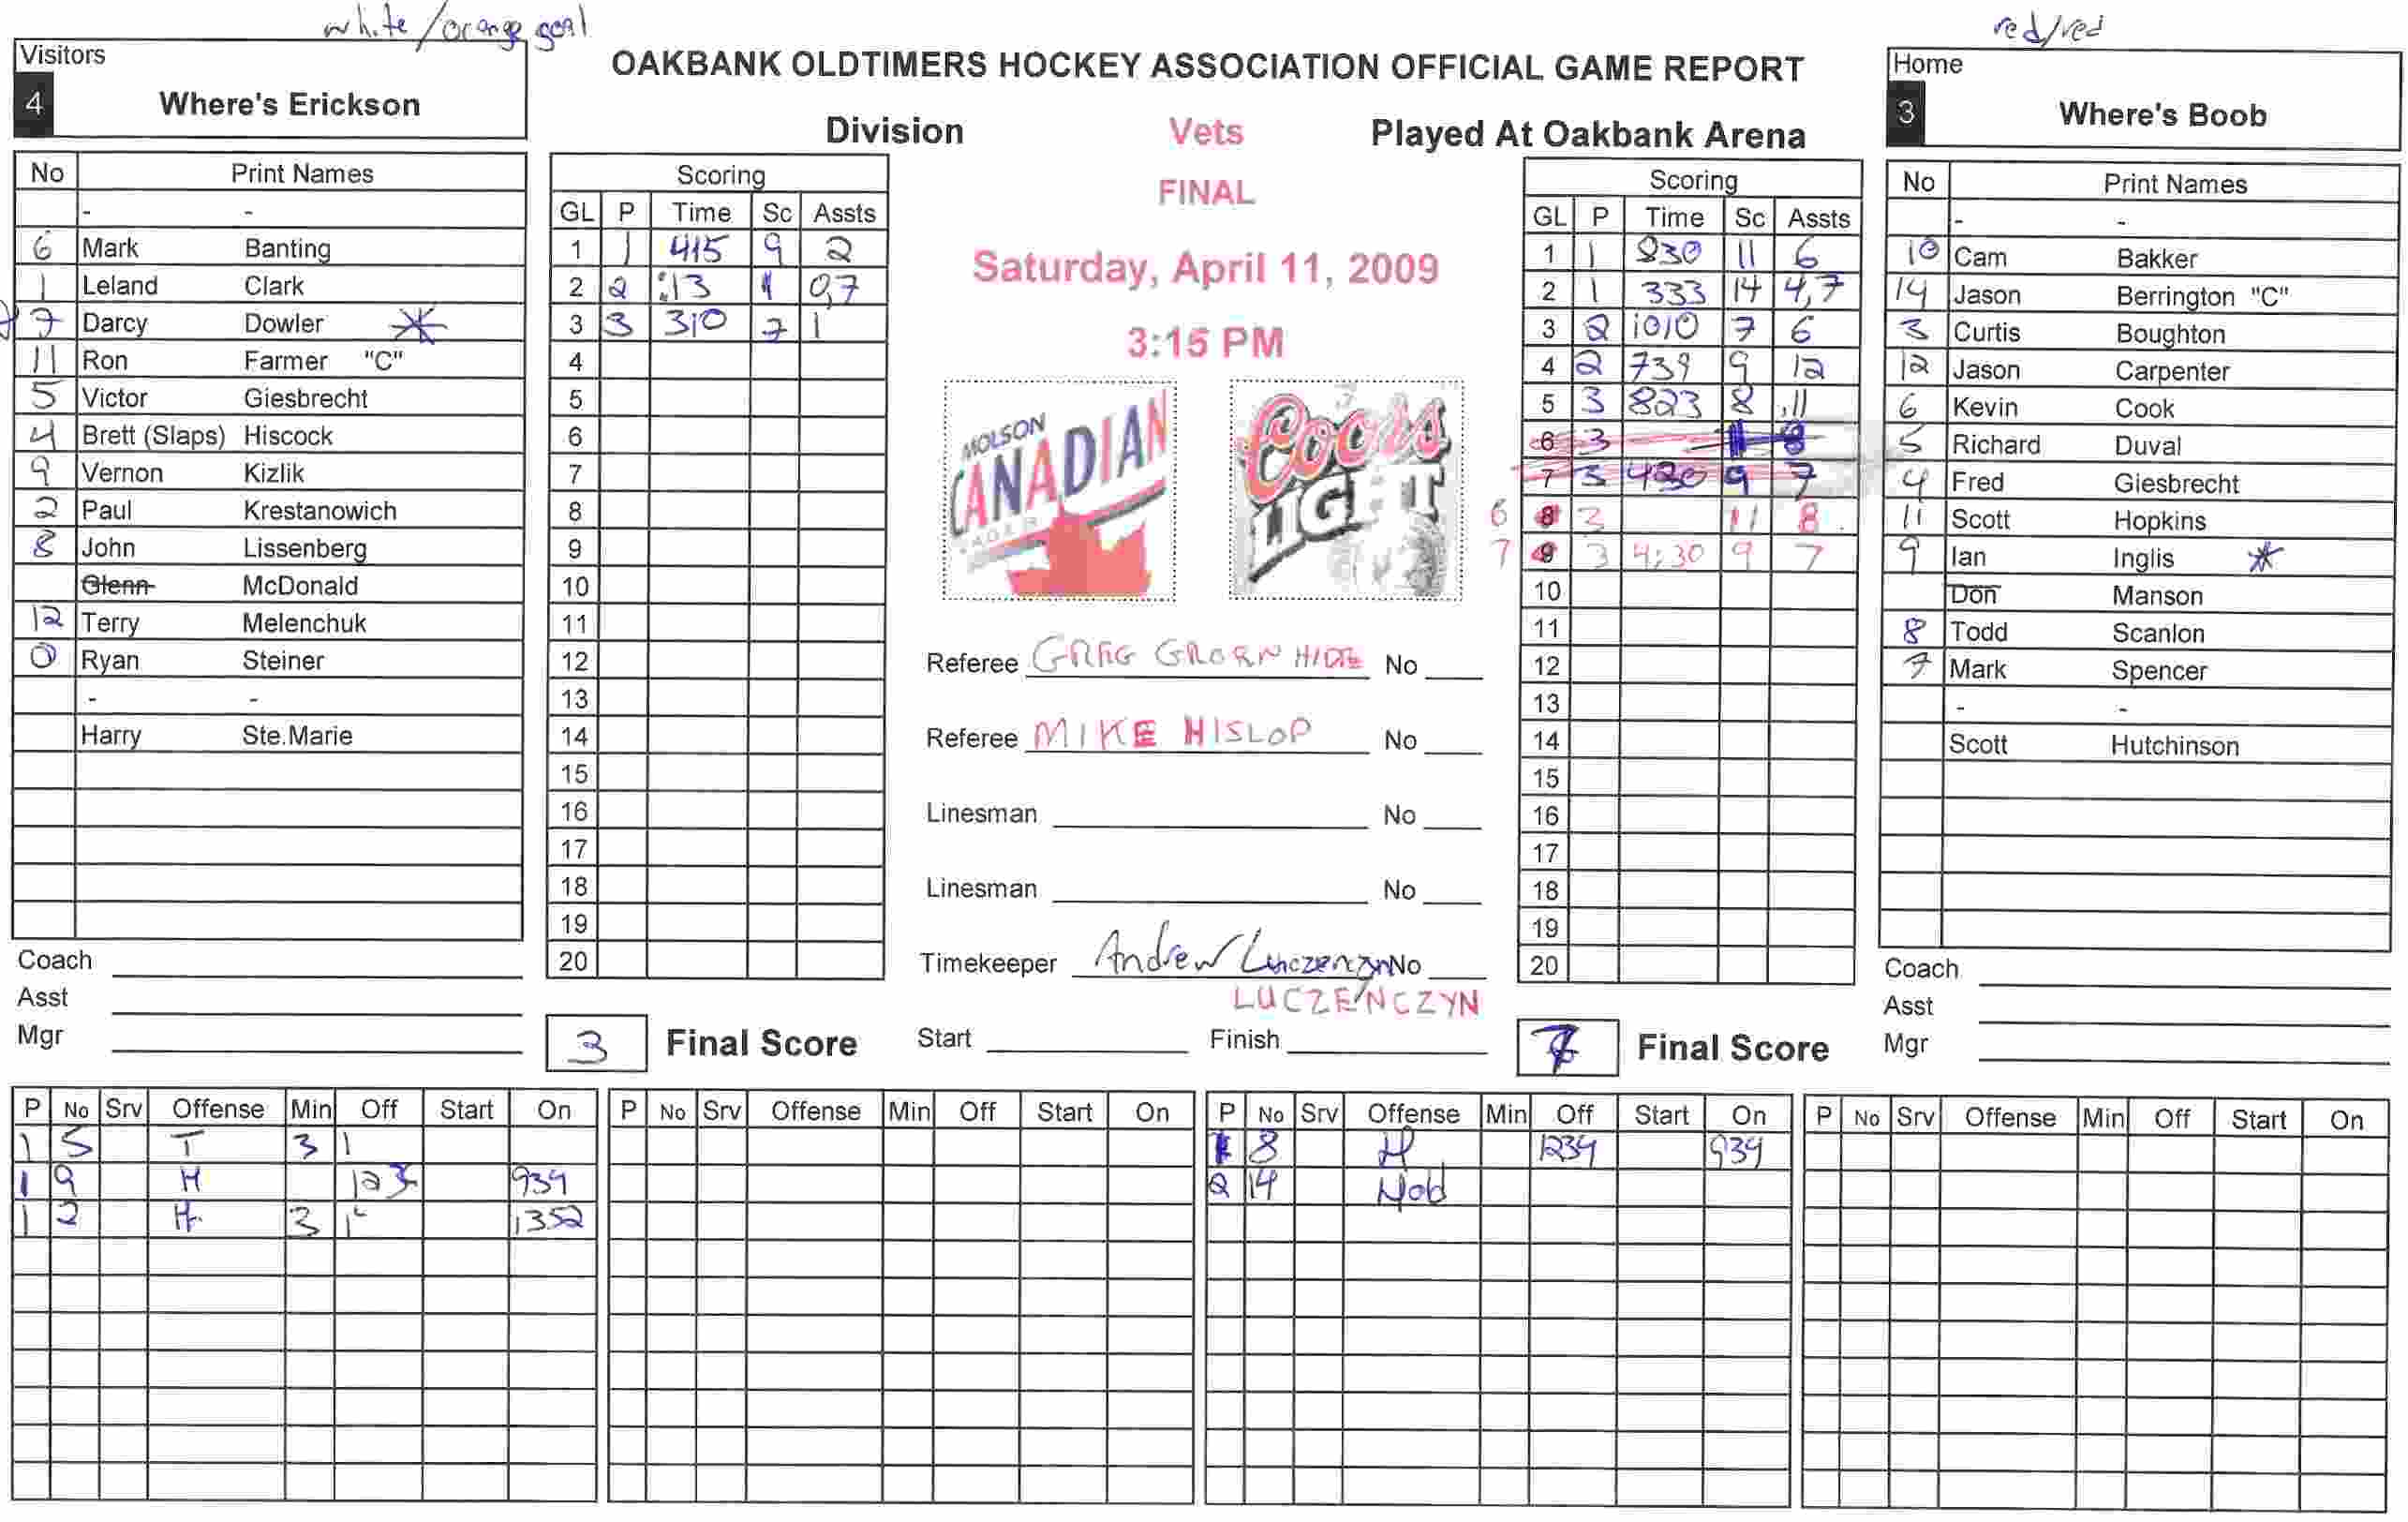 white/orange goal
red/red
Visitors
4 Where's Erickson
OAKBANK OLDTIMERS HOCKEY ASSOCIATION OFFICIAL GAME REPORT
Division Vets Played At Oakbank Arena
FINAL
Saturday, April 11, 2009
3:15 PM
Home
3 Where's Boob
No Print Names
- -
6 Mark Banting
1 Leland Clark
7 Darcy Dowler *
11 Ron Farmer "C"
5 Victor Giesbrecht
4 Brett (Slaps) Hiscock
9 Vernon Kizlik
2 Paul Krestanowich
8 John Lissenberg
Glenn McDonald
12 Terry Melenchuk
0 Ryan Steiner
- -
Harry Ste.Marie
Coach
Asst
Mgr
Scoring
GL P Time Sc Assts
1 1 415 9 2
2 2 :13 1 0,7
3 3 310 7 1
4
5
6
7
8
9
10
11
12
13
14
15
16
17
18
19
20
3 Final Score
MOLSON
CANADIAN
LAGER
Coors
LIGHT
Referee GREG GRORNHIDE No
Referee MIKE HISLOP No
Linesman No
Linesman No
Timekeeper Andrew Luczenczyn No
LUCZENCZYN
Start Finish
Scoring
GL P Time Sc Assts
1 1 830 11 6
2 1 333 14 4,7
3 2 1010 7 6
4 2 739 9 12
5 3 823 8 11
6 3 11 8
7 3 430 9 7
6 8 3 11 8
7 9 3 4:30 9 7
10
11
12
13
14
15
16
17
18
19
20
7 Final Score
No Print Names
- -
10 Cam Bakker
14 Jason Berrington "C"
3 Curtis Boughton
12 Jason Carpenter
6 Kevin Cook
5 Richard Duval
4 Fred Giesbrecht
11 Scott Hopkins
9 Ian Inglis *
Don Manson
8 Todd Scanlon
7 Mark Spencer
- -
Scott Hutchinson
Coach
Asst
Mgr
P No Srv Offense Min Off Start On
1 5 T 3 1
1 9 H 123 939
1 2 H 3 1 1352
P No Srv Offense Min Off Start On
P No Srv Offense Min Off Start On
1 8 H 1239 939
2 14 Hold
P No Srv Offense Min Off Start On